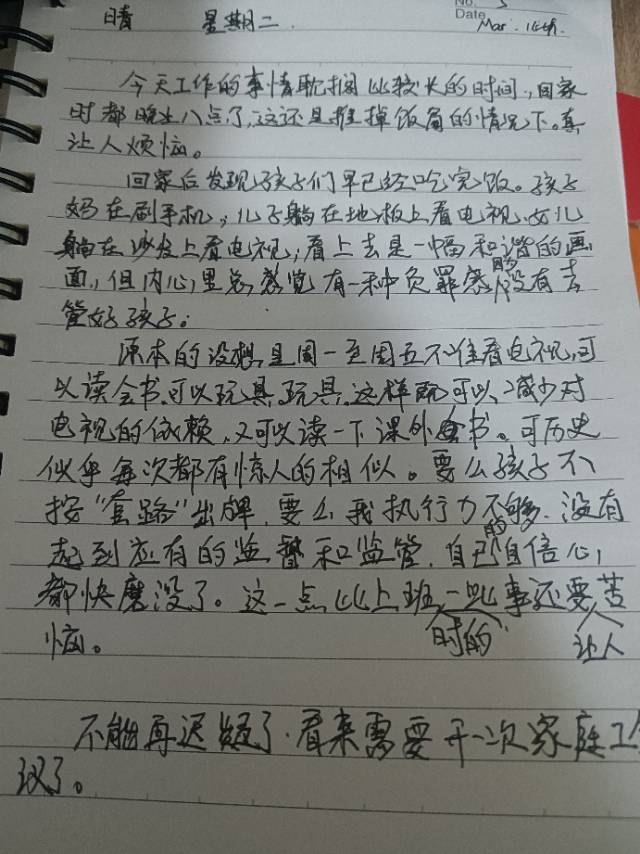 No. 3
Date
晴 星期二 Mar. 14th.
今天工作的事情耽搁比较长的时间,回家
时都晚上八点了,这还是推掉饭局的情况下。真
让人烦恼。
回家后发现孩子们早已经吃完饭。孩子
妈在刷手机,儿子躺在地板上看电视,女儿
躺在沙发上看电视,看上去是一幅和谐的画
面,但内心里总感觉有一种负罪感的没有去
管好孩子。
原本的设想是周一至周五不准看电视,可
以读全书,可以玩具玩具。这样既可以减少对
电视的依赖,又可以读一下课外书。可历史
似乎每次都有惊人的相似。要么孩子不
按“套路”出牌,要么我执行力不够,没有
起到应有的监督和监管,自己的自信心,
都快磨没了。这一点比上班时的一些事还要让人苦
恼。
不能再迟疑了,看来需要开一次家庭
议了。